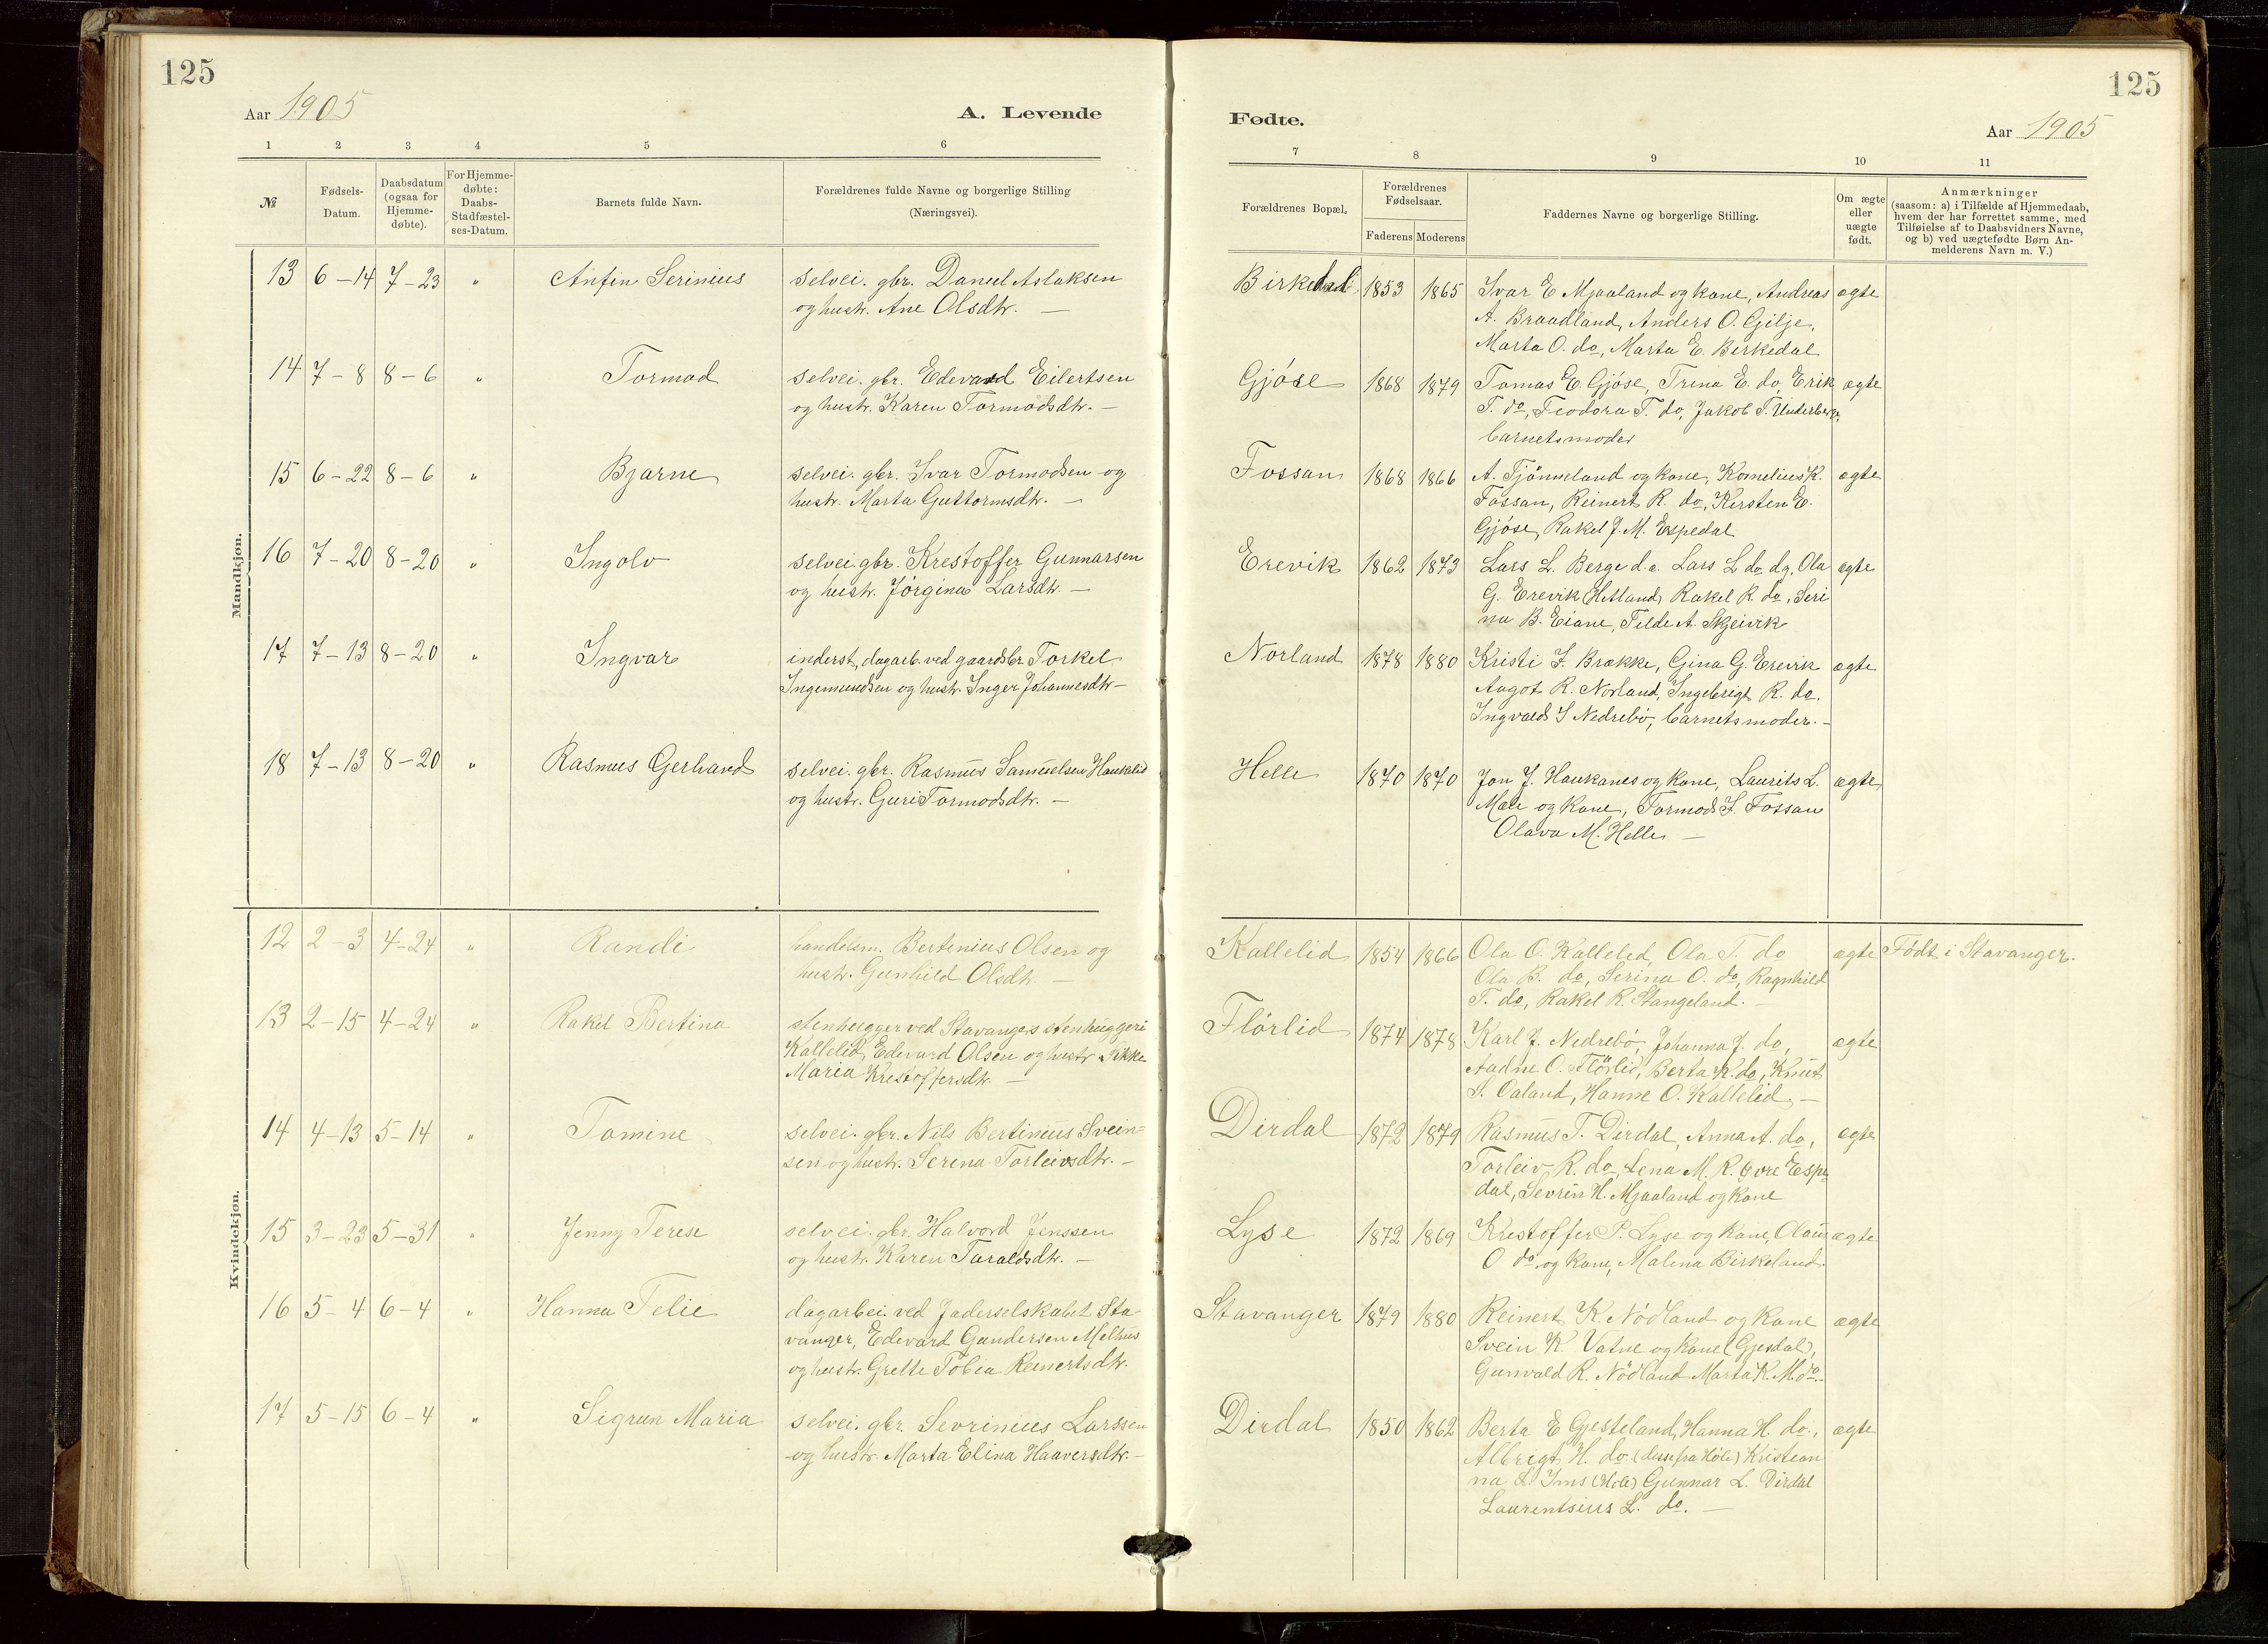 125
125
Aar 1905
A. Levende
Fødte.
Aar 1905
1 2 3 4 5 6
7 8 9 10 11
№
Fødsels-Datum.
Daabsdatum (ogsaa for Hjemme-døbte).
For Hjemme-døbte: Daabs-Stadfæstel-ses-Datum.
Barnets fulde Navn.
Forældrenes fulde Navne og borgerlige Stilling (Næringsvei).
Forældrenes Bopæl.
Forældrenes Fødselsaar.
Faderens Moderens
Faddernes Navne og borgerlige Stilling.
Om ægte eller uægte født.
Anmærkninger
(saasom: a) i Tilfælde af Hjemmedaab,
hvem der har forrettet samme, med
Tilføielse af to Daabsvidners Navne,
og b) ved uægtefødte Børn An-
melderens Navn m. V.)
Mandkjøn.
13 6-14 7-23 " Anfin Serinius selvei. gbr. Daneel Aslaksen
og hustr. Ane Olsdtr. —
Birkedal 1853 1865 Ivar E Mjaaland og kone, Andreas ægte
A. Braadland, Anders O. Gilje,
Marta O. do, Marta E. Birkedal
14 7-8 8-6 " Tormod selvei. gbr. Edevard Eilertsen
og hustr. Karen Tormodsdtr. —
Gjöse 1868 1879 Tomas E. Gjöse, Trina E. do, Erik ægte
T. do, Teodora T. do, Jakob T. Underberge,
barnets moder
15 6-22 8-6 " Bjarne selvei. gbr. Ivar Tormodsen og
hustr. Marta Guttormsdtr. —
Fossan 1868 1866 A. Tjönneland og kone, Kornelius K. ægte
Fossan, Reinert R. do, Kirsten E.
Gjöse, Rakel J. M. Espedal
16 7-20 8-20 " Ingolv selvei. gbr. Krestoffer Gunnarsen
og hustr. Jörgina Larsdtr. —
Erevik 1862 1873 Lars L. Berge d.e. Lars L do d.y. Ola ægte
G. Erevik (Hetland) Rakel R. do, Seri
na B. Eiane, Tilde A. Skjeivik
17 7-13 8-20 " Ingvar inderst, dagarb. ved gaardsbr Torkel
Ingemundsen og hustr. Inger Johannesdtr —
Norland 1878 1880 Kristi I. Brække, Gina G. Erevik ægte
Aagot R. Norland, Ingebrigt R. do.
Ingvald S Nedrebö, barnets moder. —
18 7-13 8-20 " Rasmus Gerhard selvei. gbr. Rasmus Samuelsen Haukelid
og hustr. Guri Tormodsdtr. —
Helle 1870 1870 Jon J. Haukanes og kone, Laurits L. ægte
Mæle og kone, Tormod I. Fossan
Olava M. Helle —
Kvindekjøn.
12 2-3 4-24 " Randi handelsm. Bertinius Olsen og
hustr. Gunhild Olsdtr. —
Kallelid 1854 1866 Ola O. Kallelid, Ola T. do ægte Født i Stavanger.
Ola B. do, Serina O. do, Ragnhild
T. do, Rakel R. Stangeland. —
13 2-15 4-24 " Rakel Bertina stenhugger ved Stavangers stenhuggeri
Kallelid, Edevard Olsen og hustr.
Maria Krestoffersdtr. —
Flörlid 1874 1878 Karl J. Nedrebö, Johanna J. do, ægte
Aadne O. Flörlid, Berta K. do, Knut
S. Oaland, Hanne O. Kallelid. —
14 4-13 5-14 " Tomine selvei. gbr. Nils Bertinius Svein=
sen og hustr. Serena Torleivsdtr. —
Dirdal 1872 1879 Rasmus T. Dirdal, Anna A. do, ægte
Torleiv R. do, Lena M. R. Øvre Espe
dal, Sevrin H. Mjaaland og kone
15 3-23 5-31 " Jenny Terese selvei. gbr. Halvord Jenssen
og hustr. Karen Taraldsdtr. —
Lyse 1872 1869 Krestoffer P. Lyse og kone, Olaus ægte
O do og kone, Malena Birkeland.
16 5-4 6-4 " Hanna Telie dagarbei. ved Jæderselskabet Sta-
vanger, Edevard Gundersen Melhus
og hustr. Grette Tobia Reinertsdtr.
Stavanger 1879 1880 Reinert K. Nödland og kone ægte
Svein K. Vatne og kone (Gjesdal),
Gunvald R. Nödland Marta K. M. do. —
17 5-15 6-4 " Sigrun Maria selvei. gbr. Sevrinius Larssen
og hustr. Marta Elina Haaversdtr. —
Dirdal 1850 1862 Berta E Gjesteland, Hanna H. do., ægte
Albrigt H. do (disse fra Höle) Kristian
na L. Ims (Höle) Gunnar L. Dirdal
Laurentsius L. do. —